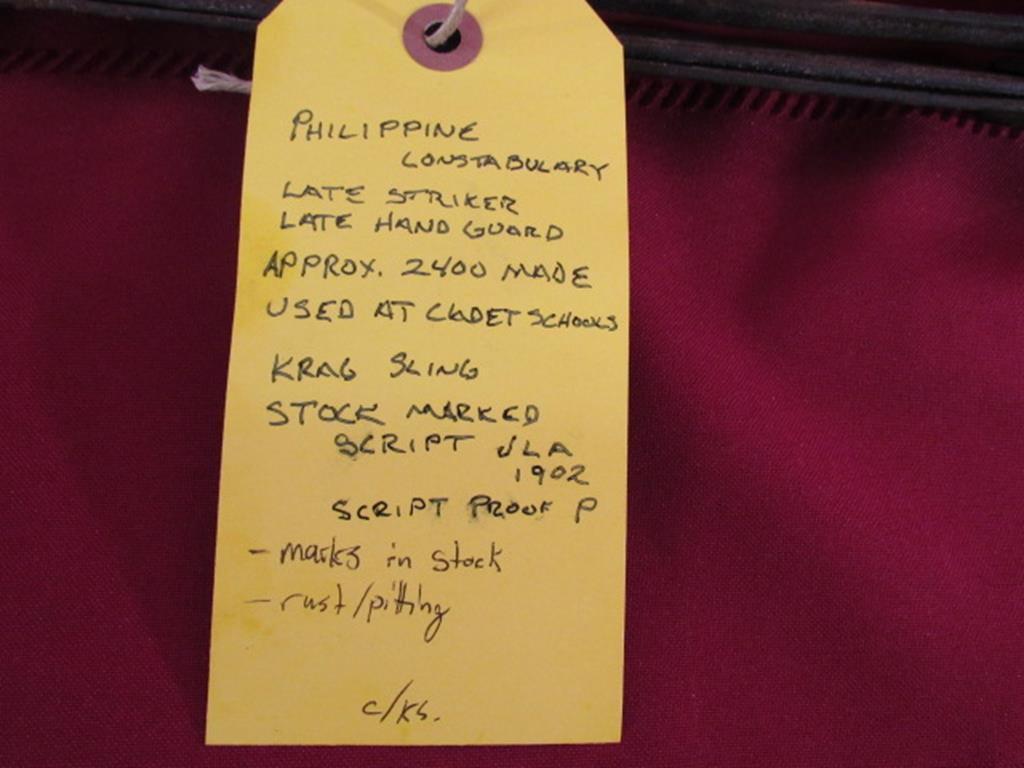 PHILIPPINE
CONSTABULARY
LATE STRIKER
LATE HAND GUARD
APPROX. 2400 MADE
USED AT CADET SCHOOLS
KRAG SLING
STOCK MARKED
SCRIPT JLA
1902
SCRIPT PROOF P
- marks in stock
- rust/pitting
c/ks.